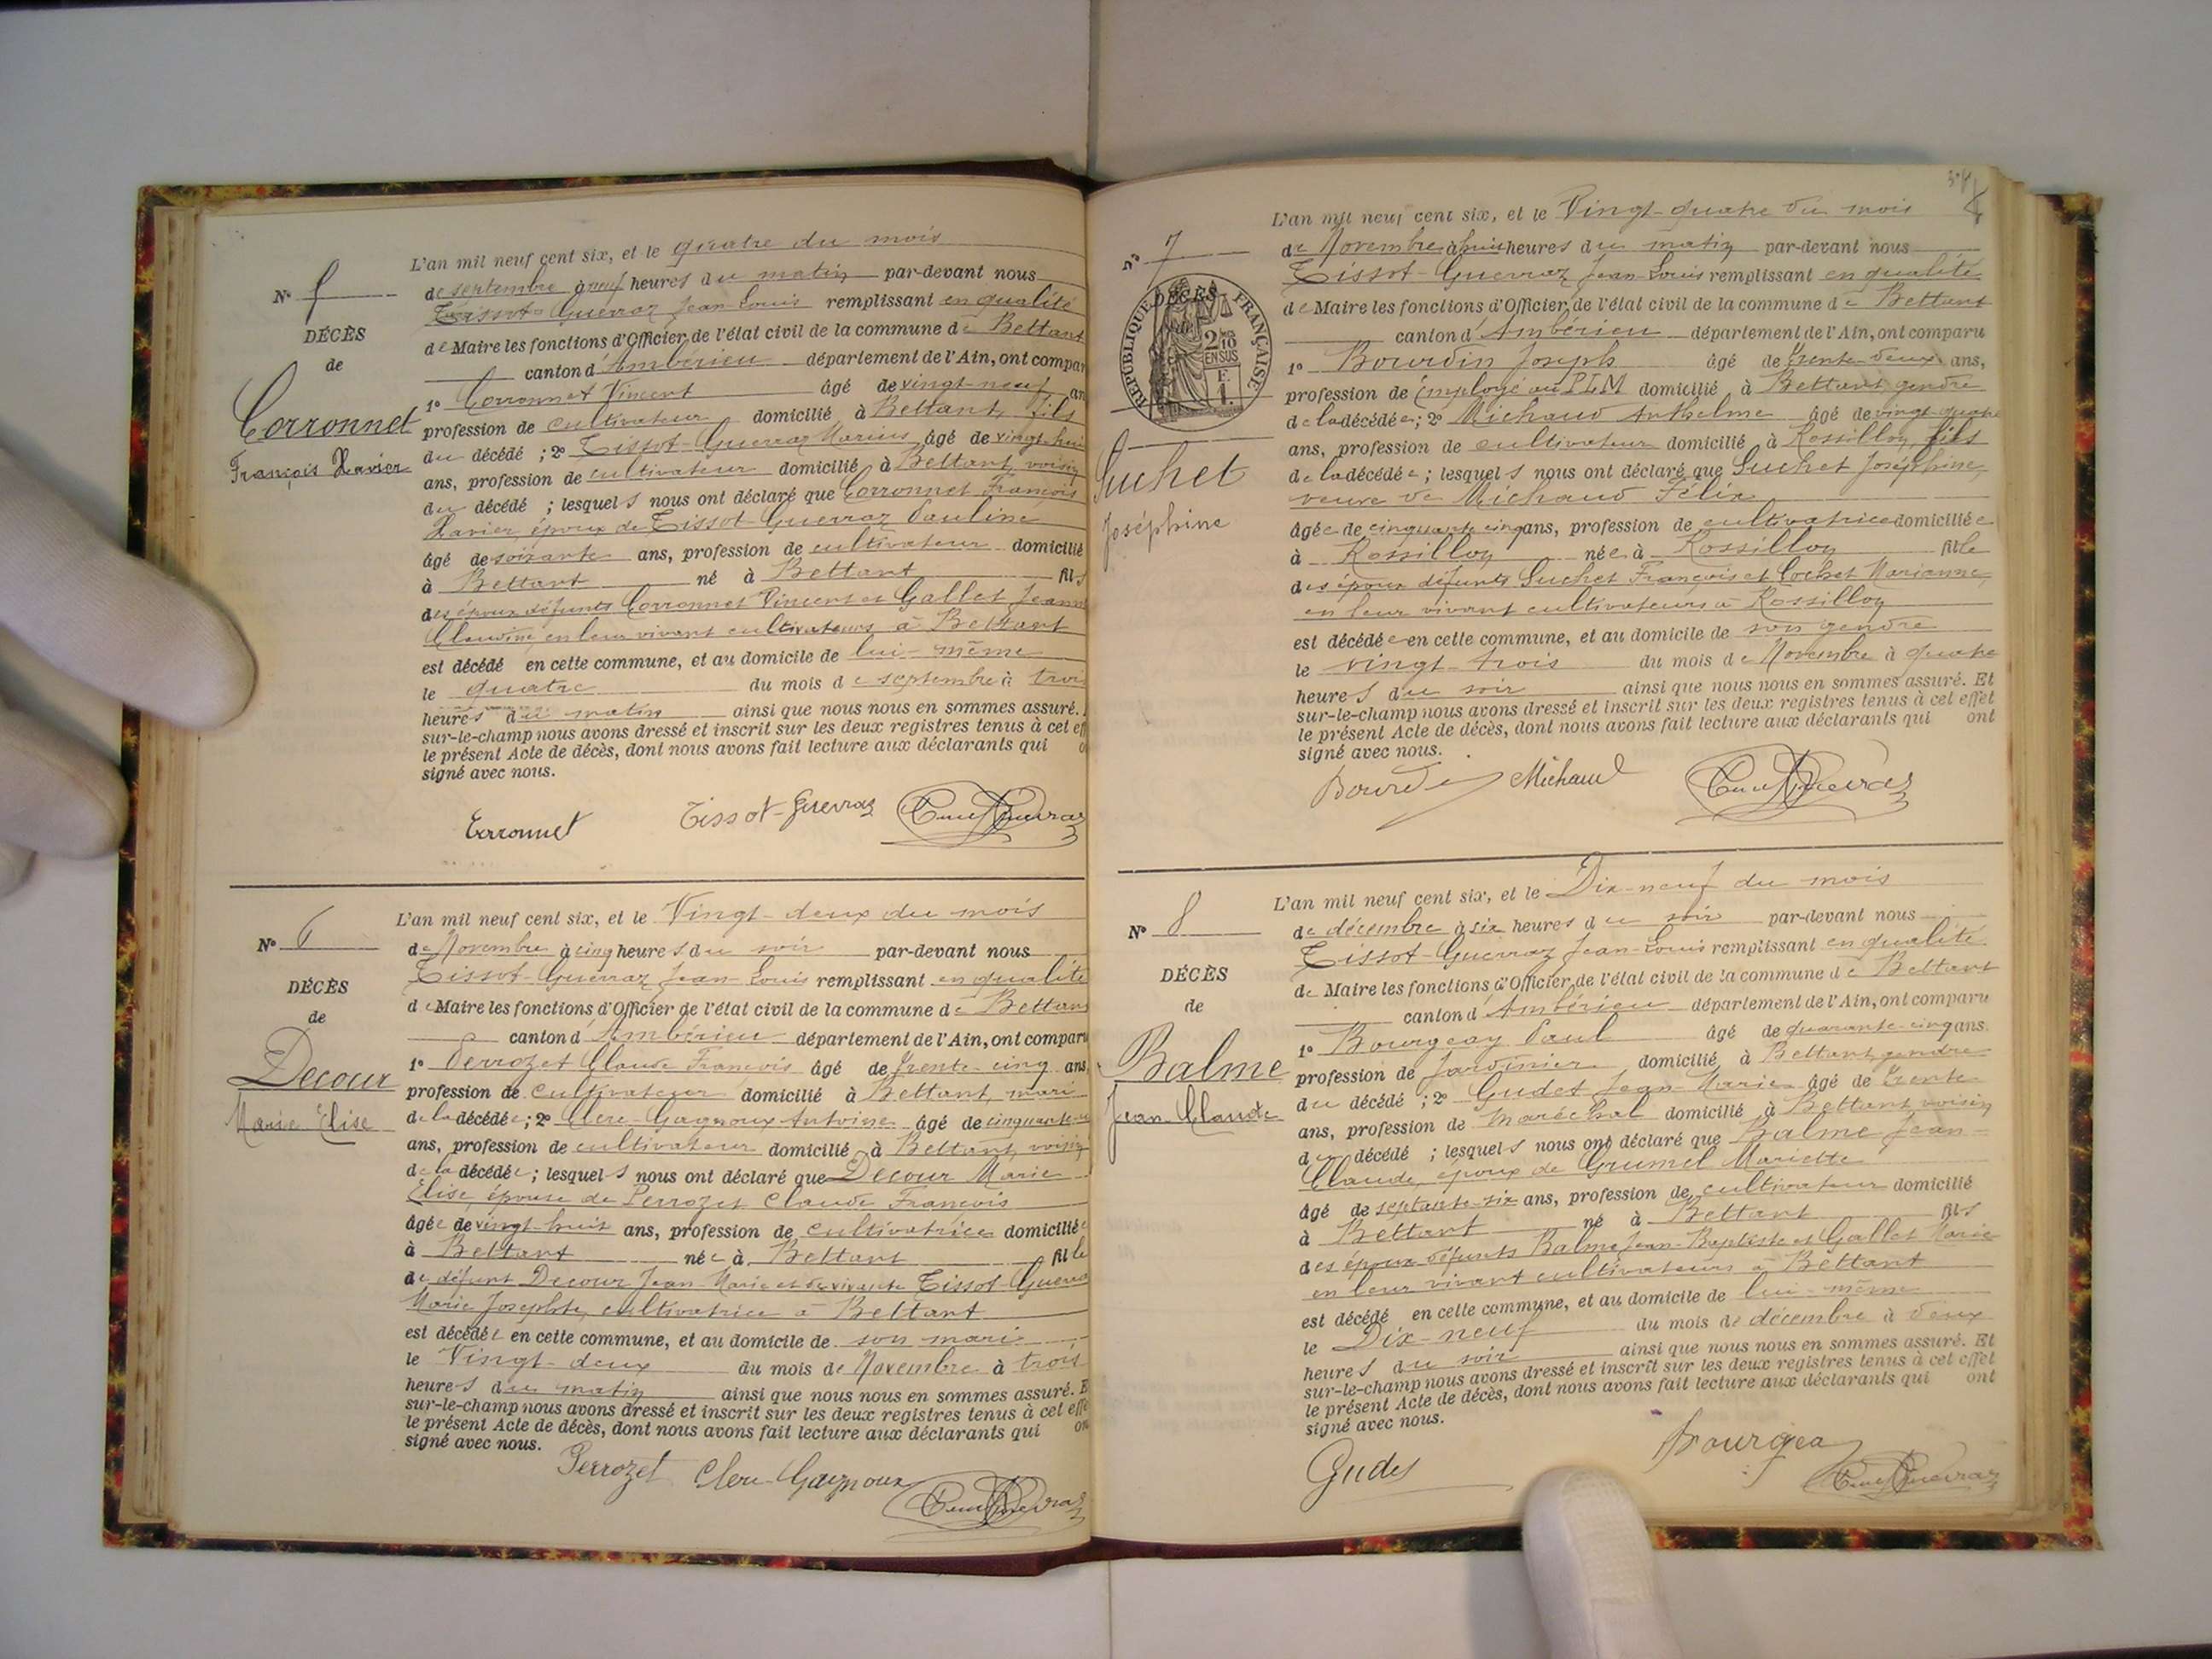 N° 5
DÉCÈS
de
Corronnet
François Xavier
L'an mil neuf cent six, et le quatre du mois
de septembre à neuf heures du matin par-devant nous
Tissot-Guerraz Jean-Louis remplissant en qualité
de Maire les fonctions d'Officier de l'état civil de la commune de Bettant
canton d'Ambérieu département de l'Ain, ont compar
1° Corronnet Vincent âgé de vingt-neuf an
profession de cultivateur domicilié à Bettant, fils
du décédé ; 2° Tissot-Guerraz Marius âgé de vingt-hui
ans, profession de cultivateur domicilié à Bettant, voisin
du décédé ; lesquels nous ont déclaré que Corronnet François
Xavier, époux de Tissot-Guerraz Pauline
âgé de soixante ans, profession de cultivateur domicilié
à Bettant né à Bettant fils
des époux défunts Corronnet Vincent et Gallet Jeanne
Claudine, en leur vivant cultivateurs à Bettant
est décédé en cette commune, et au domicile de lui-même
le quatre du mois de septembre à trois
heures du matin ainsi que nous nous en sommes assuré.
sur-le-champ nous avons dressé et inscrit sur les deux registres tenus à cet eff
le présent Acte de décès, dont nous avons fait lecture aux déclarants qui o
signé avec nous.
Corronnet Tissot-Guerraz
N° 6
DÉCÈS
de
Decour
Marie Elise
L'an mil neuf cent six, et le Vingt-deux du mois
de Novembre à cinq heures du soir par-devant nous
Tissot-Guerraz Jean-Louis remplissant en qualité
de Maire les fonctions d'Officier de l'état civil de la commune de Bettant
canton d'Ambérieu département de l'Ain, ont comparu
1° Perrozet Claude François âgé de trente-cinq ans
profession de cultivateur domicilié à Bettant, mari
de la décédée ; 2° Clerc-Gagnoux Antoine âgé de cinquante
ans, profession de cultivateur domicilié à Bettant, voisin
de la décédée ; lesquels nous ont déclaré que Decour Marie
Elise, épouse de Perrozet Claude François
âgée de vingt-huit ans, profession de cultivatrice domiciliée
à Bettant née à Bettant fille
de défunt Decour Jean-Marie et de vivante Tissot-Guerra
Marie Josephte, cultivatrice à Bettant
est décédée en cette commune, et au domicile de son mari
le Vingt-deux du mois de Novembre à trois
heures du matin ainsi que nous nous en sommes assuré. E
sur-le-champ nous avons dressé et inscrit sur les deux registres tenus à cet effe
le présent Acte de décès, dont nous avons fait lecture aux déclarants qui on
signé avec nous.
Perrozet Clerc-Gagnoux
N° 7
RÉPUBLIQUE FRANÇAISE
DÉCÈS
de
2/10
EN SUS
F.
1.
Suchet
Joséphine
L'an mil neuf cent six, et le Vingt-quatre du mois
de Novembre à huit heures du matin par-devant nous
Tissot-Guerraz Jean-Louis remplissant en qualité
de Maire les fonctions d'Officier de l'état civil de la commune de Bettant
canton d'Ambérieu département de l'Ain, ont comparu
1° Bourdin Joseph âgé de trente-deux ans,
profession de Employé au PLM domicilié à Bettant, gendre
de la décédée ; 2° Michaud Anthelme âgé de vingt-quatre
ans, profession de cultivateur domicilié à Rossillon, fils
de la décédée ; lesquels nous ont déclaré que Suchet Joséphine,
veuve de Michaud Félix
âgée de cinquante-cinq ans, profession de cultivatrice domiciliée
à Rossillon née à Rossillon fille
des époux défunts Suchet François et Cochet Marianne,
en leur vivant cultivateurs à Rossillon
est décédée en cette commune, et au domicile de son gendre
le vingt-trois du mois de Novembre à quatre
heures du soir ainsi que nous nous en sommes assuré. Et
sur-le-champ nous avons dressé et inscrit sur les deux registres tenus à cet effet
le présent Acte de décès, dont nous avons fait lecture aux déclarants qui ont
signé avec nous.
Bourdin Michaud
N° 8
DÉCÈS
de
Balme
Jean-Claude
L'an mil neuf cent six, et le Dix-neuf du mois
de décembre à six heures du soir par-devant nous
Tissot-Guerraz Jean-Louis remplissant en qualité
de Maire les fonctions d'Officier de l'état civil de la commune de Bettant
canton d'Ambérieu département de l'Ain, ont comparu
1° Bourgeay Paul âgé de quarante-cinq ans.
profession de Jardinier domicilié à Bettant, gendre
du décédé ; 2° Gudet Jean-Marie âgé de trente
ans, profession de Maréchal domicilié à Bettant, voisin
du décédé ; lesquels nous ont déclaré que Balme Jean-
Claude, époux de Grumel Mariette
âgé de septante-six ans, profession de cultivateur domicilié
à Bettant né à Bettant fils
des époux défunts Balme Jean-Baptiste et Gallet Marie
en leur vivant cultivateurs à Bettant
est décédé en cette commune, et au domicile de lui-même
le Dix-neuf du mois de décembre à deux
heures du soir ainsi que nous nous en sommes assuré. Et
sur-le-champ nous avons dressé et inscrit sur les deux registres tenus à cet effet
le présent Acte de décès, dont nous avons fait lecture aux déclarants qui ont
signé avec nous.
Gudet Bourgeay